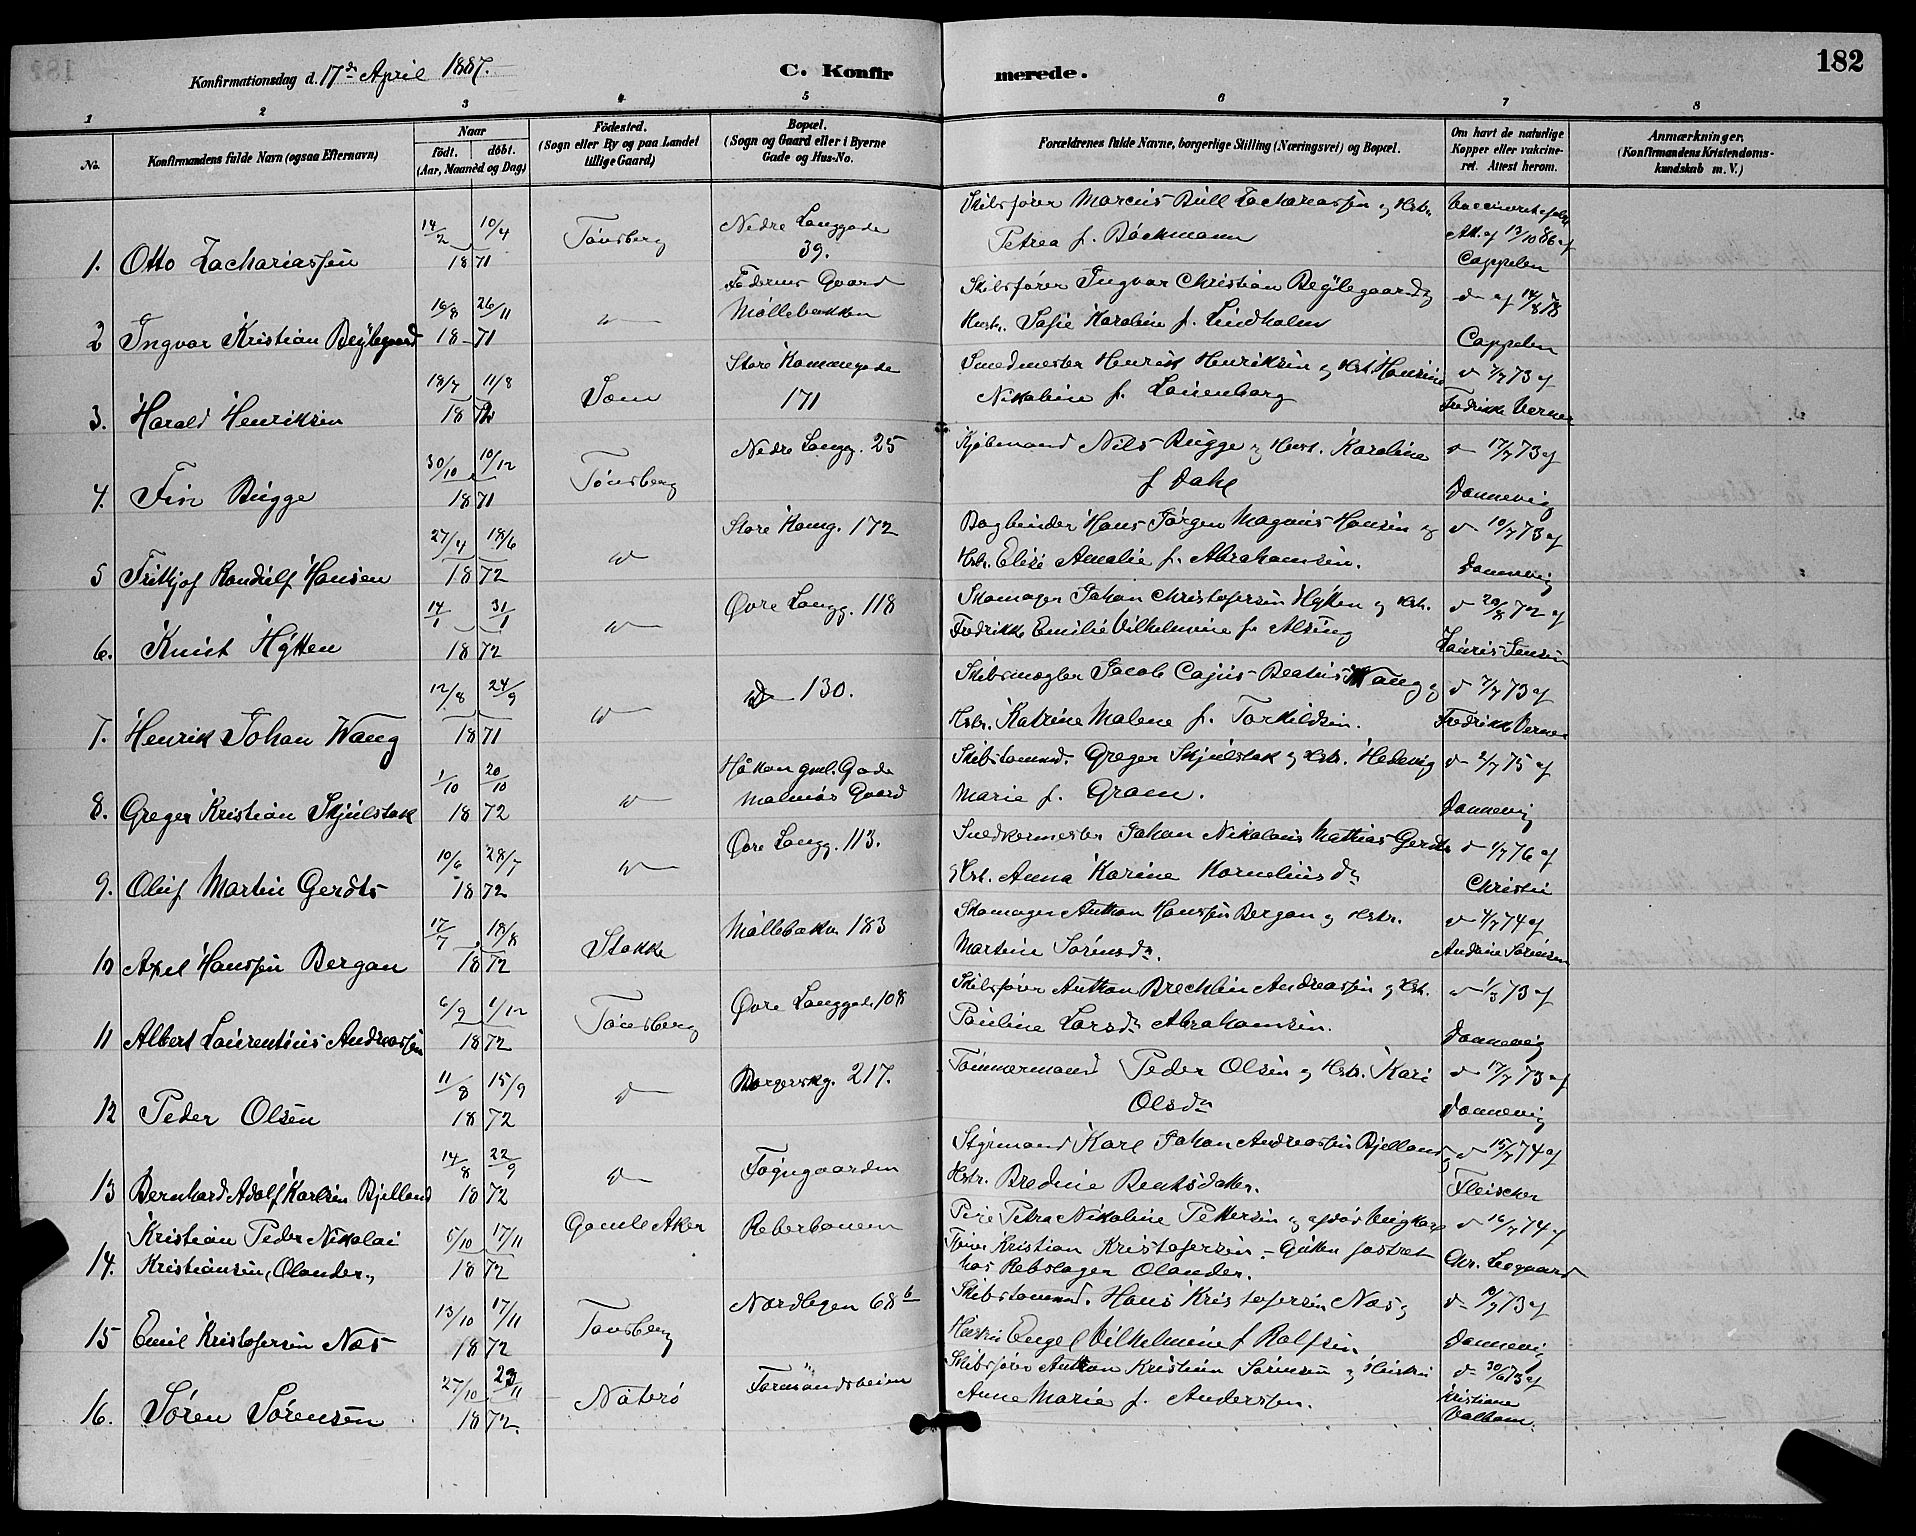 182
Konfirmationsdag d. 17de April 1887.
C. Konfirmerede.
1 2 3 4 5 6 7 8
No.
Konfirmandens fulde Navn (ogsaa Efternavn)
Naar
født. døbt.
(Aar, Maaned og Dag)
Födested.
(Sogn eller By og paa Landet
tillige Gaard)
Bopæl.
(Sogn og Gaard eller i Byerne
Gade og Hus-No.
Forældrenes fulde Navne, borgerlige Stilling (Næringsvei) og Bopæl.
Om havt de naturlige
Kopper eller vakcine-
ret. Attest herom.
Anmærkninger,
(Konfirmandens Kristendoms-
kundskab m. V.)
1. Otto Zachariassen
14/2 10/4
1871
Tönsberg
Nedre Langgade
39.
Skibsfører Marcus Bull Zachariassen og Hstr.
Petrea f. Böckmann
Att. af 13/10 86 af
Cappelen
2 Ingvar Kristian Bøylegaard
16/8 26/11
18-71
Gaard
Møllebakken
Skibsfører Ingvar Christian Bøylegaard og
Hustr. Sofie Karoline f. Lindholm
Cappelen
3. Harald Henriksen
18/7 11/8
1872
Sem
Store Kammegade
171
Smedmester Henrik Henriksen og Hst. Hansine
Nikoline f. Lauenborg
d 7/7 73 af
Fredrikke Verner
4. Fin Bugge
30/10 10/12
1871
Tönsberg
Nedre Langg. 25
Kjøbmand Nils Bugge og Hust. Karoline
f Dahl
d 17/7 73 af
Dannevig
5 Frithjof Randulf Hansen
27/4 18/6
1872
Store Kamg. 172
Bogbinder Hans Jørgen Magnus Hansen og
Hstr. Elise Amalie f. Abrahamsen.
d 10/7 73 af
Dannevig
6. Knut Hytten
14/1 31/1
1872
Øvre Langg. 118
Skomager Johan Christofersen Hytten og Hstr.
Fredrikke Emilie Vilhelmine f. Alsing
d 20/8 72 af
Lauris Jensen
7. Henrik Johan Wang
12/8 24/9
1871
D 130.
Skibsmægler Jacob Cajus Beatus Wang og
Hstr. Katrine Malene f. Torkildsen.
d 7/7 73 af
Fredrikke Verner
8. Greger Kristian Skjulstak
1/10 20/10
1872
Håkon gml. Gade
Malmös Gaard
Skibstømmd. Greger Skjulstak og Hstr. Hedevig
Marie f. Gram.
d 2/7 75 af
Dannevig
9. Oluf Martin Gerdts
10/6 28/7
1872
Øvre Langg. 113.
Snedkermester Johan Nikolaus Mathias Gerdts
og Hst. Anna Karine Korneliusdr
d 1/7 76 af
Christie
10 Axel Hanssen Bergan
17/7 18/8
1872
Stokke
Møllebakn 183
Skomager Anthon Hanssen Bergan og Hstr.
Martine Sørensdr.
d 4/7 74 af
Andrine Sørensen
11 Albert Laurentius Andreassen
6/9 1/12
1872
Tönsberg
Øvre Langgade 108
Skibsfører Anthon Brechlin Andreassen og Hst.
Pauline Larsdr Abrahamsen.
d 1/3 73 af
Dannevig
12 Peder Olsen
11/8 15/9
1872
d
217.
Tømmermand Peder Olsen og Hstr. Kari
Olsdr
d 17/7 73 af
Dannevig
13 Bernhard Adolf Karlsen Bjelland
14/8 22/9
1872
d
Føyngaarden
Styrmand Karl Johan Andreassen Bjelland og
Hstr. Bredine Bentsdatter.
d 15/7 74 af
Fleischer
14. Kristian Peder Nikolai
Kristiansen, Olander,
5/10 17/11
1872
Gamle Aker
Reberbanen
Pige Petra Nikoline Pettersen og afdød Ungkarl
Kristian Kristofersen. - Gutten fostret
hos Rebslager Olander.
d 16/7 74 af
Chr. Legaard
15 Emil Kristofersen Næs
13/10 17/11
1872
Tønsberg
Nordbyen 68 b
Skibstømmd. Hans Kristofersen Næs og
Hustru Engel Vilhelmine f Rolfsen
Dannevig
16. Søren Sørensen
27/10 23/11
1872.
Nøterø
Formandsheien
Skibsfører Anthon Kristian Sørensen og Hustru
Anne Marie f. Anderssen.
d 30/6 73 af
Kristiane